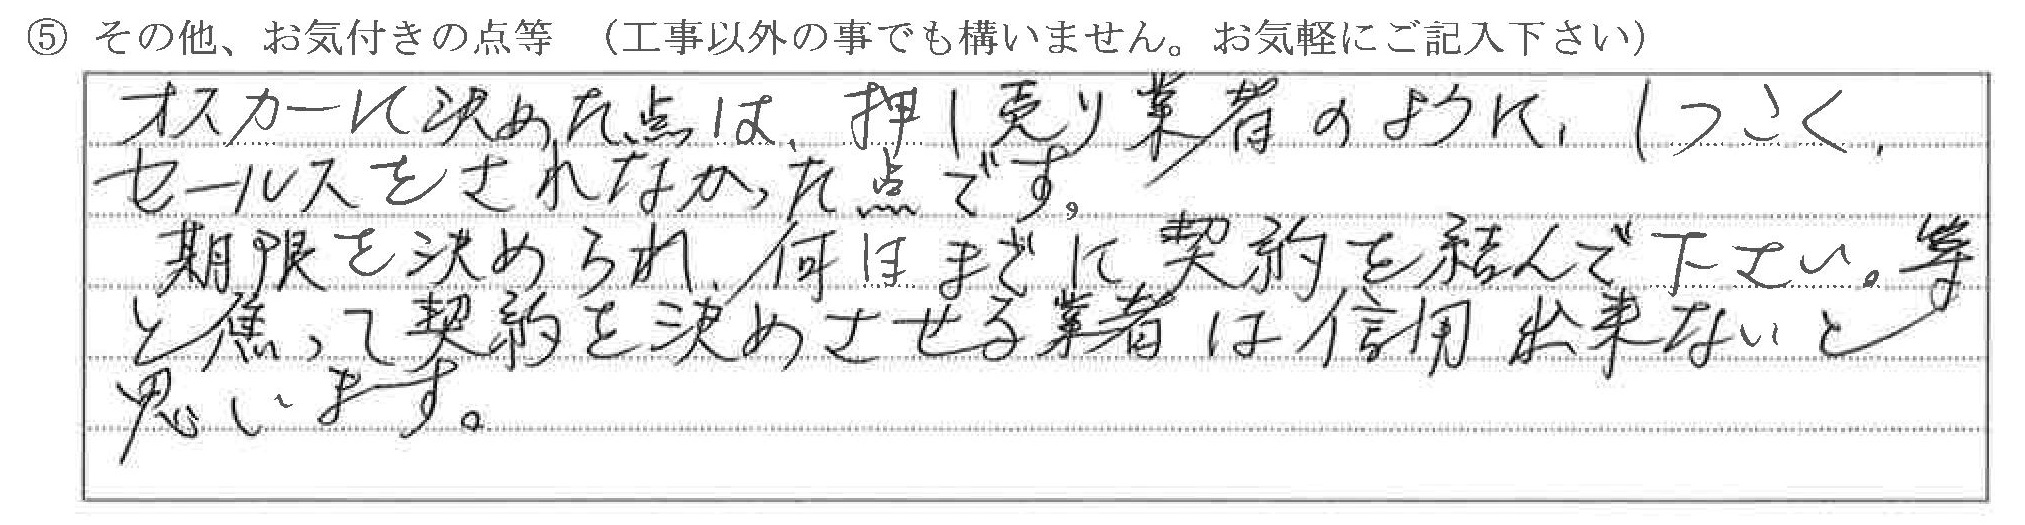 ⑤ その他、お気付きの点等 （工事以外の事でも構いません。お気軽にご記入下さい）
オスカーに決めた点は、押し売り業者のように、しつこく、
セールスをされなかった点です。
期限を決められ、何日までに契約を結んで下さい。等
と焦って契約を決めさせる業者は信用出来ないと
思います。